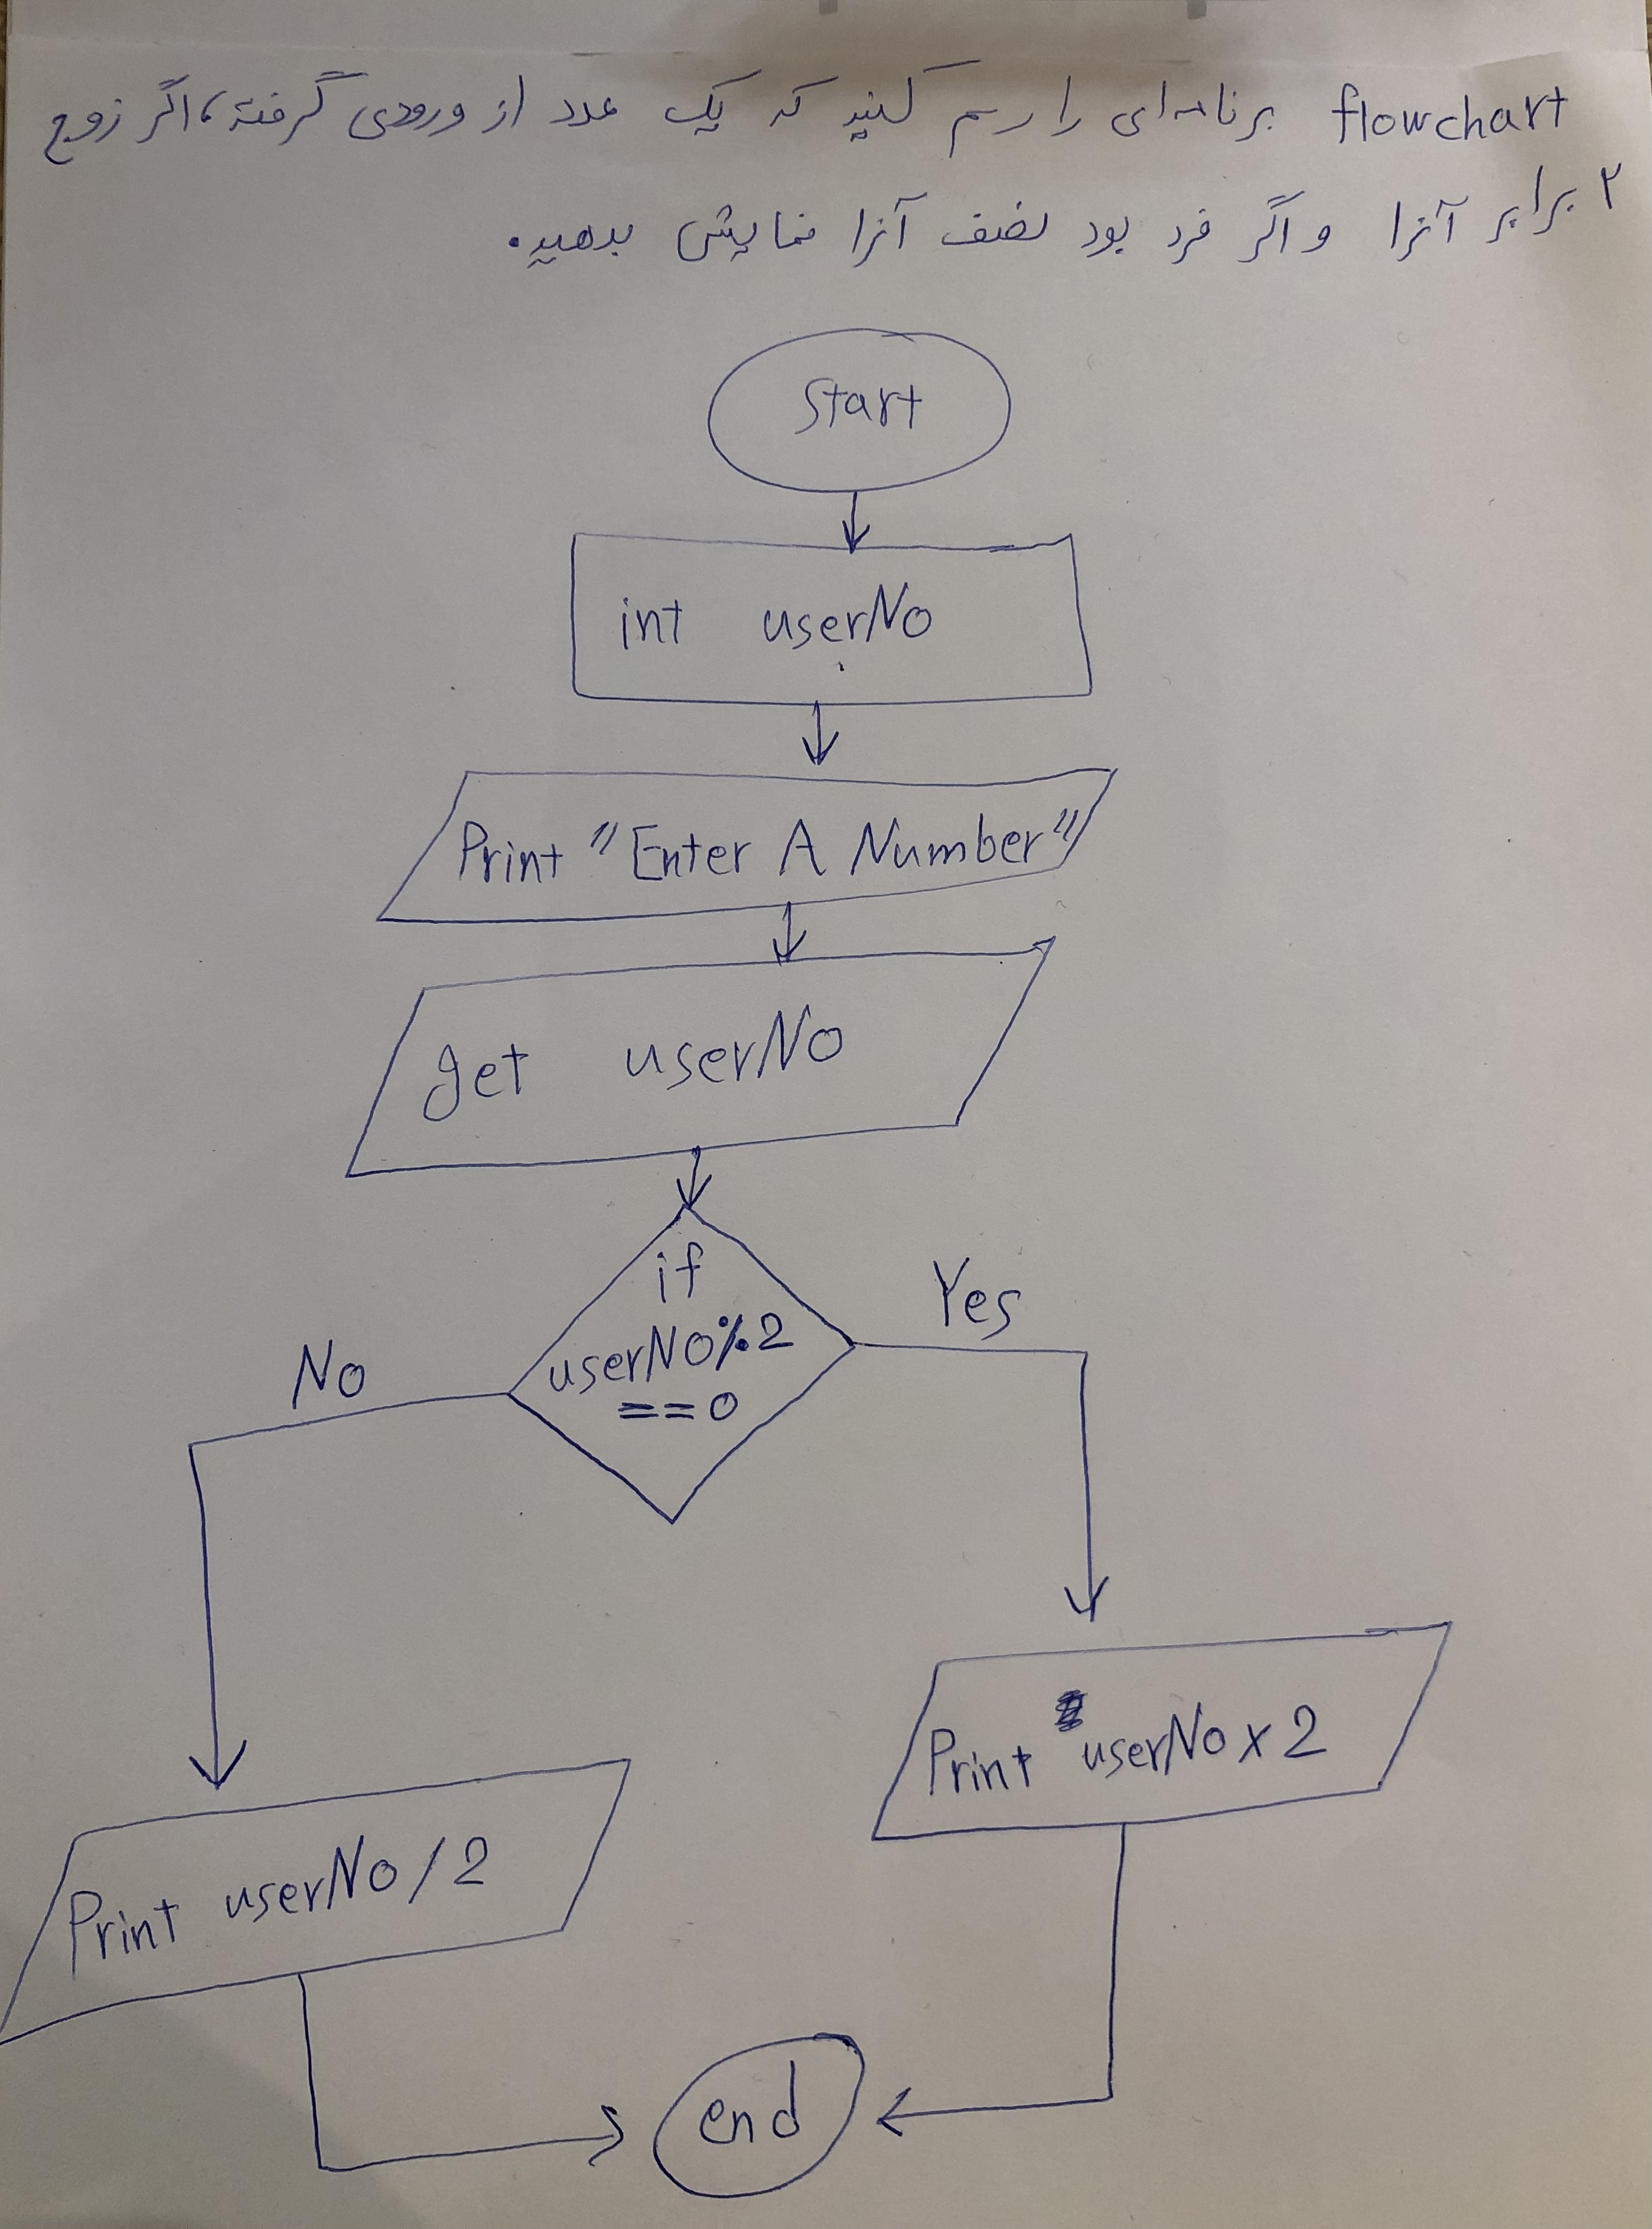 flowchart برنامه‌ای را رسم کنید که یک عدد از ورودی گرفته، اگر زوج
۲ برابر آنرا و اگر فرد بود نصف آنرا نمایش بدهید.
Start
int userNo
Print "Enter A Number"
get userNo
if
userNo%2
==0
No
Yes
Print userNo x 2
Print userNo / 2
end